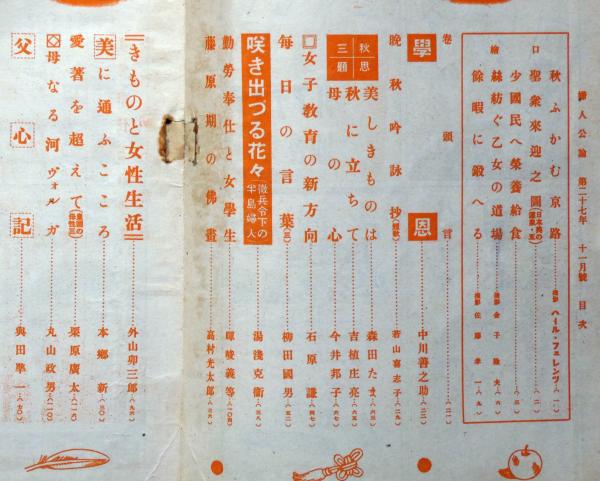 婦人公論 第二十七年 十一月號 目次
口繪
秋ふかむ京路 撮影 ハール・フェレンツ(一)
聖衆來迎之圖(日本畫の源泉・五)
少國民へ榮養給食(三)
絲紡ぐ乙女の道場 撮影 金子隆夫(六)
餘暇に鍛へる 撮影 佐藤幸一(九)
卷頭言(一)
學恩 中川善之助(三)
晩秋吟詠抄(短歌) 若山喜志子(二九)
秋思三題
美しきものは 森田たま(六三)
秋に立ちて 吉植庄亮
母の心 今井邦子(六六)
女子教育の新方向 石原謙(四七)
毎日の言葉(三) 柳田國男(五三)
咲き出づる花々(徴兵令下の半島婦人) 湯淺克衞(三八)
勤勞奉仕と女學生 暉峻義等(一〇四)
藤原期の佛畫 高村光太郎
きものと女性生活 外山卯三郎(九六)
美に通ふこころ 本鄕新
愛著を超えて 栗原廣太(一一六)
母なる河ヴォルガ 丸山政男(一一〇)
父心記 與田準一(七〇)